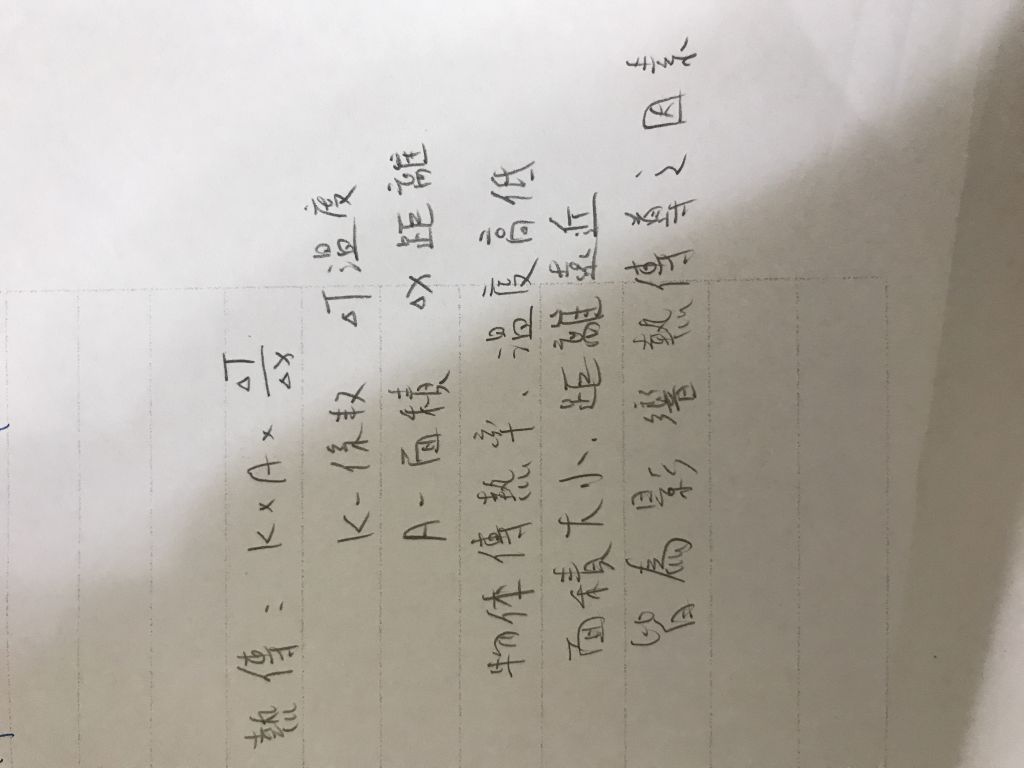 熱傳： K × A × ΔT/Δx
K - 係数 ΔT 温度
A - 面積 Δx 距離
物体傳熱率、温度高低
面積大小、距離遠近
皆為影響熱傳導之因素